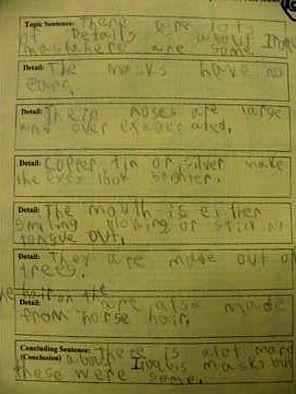 Topic Sentence: There are lots
of Details about Iroqu
mask here are some.
Detail: The masks have no
ears.
Detail: Their noses are large
and over exaggerated.
Detail: Copper tin or silver make
the eyes look brighter.
Detail: The mouth is either
smiling blowing or sticking
tongue out.
Detail: They are made out of
trees.
hair on the
Detail: are also made
from horse hair.
Concluding Sentence: There is alot more
(Conclusion) about Iroquis masks but
these were some.